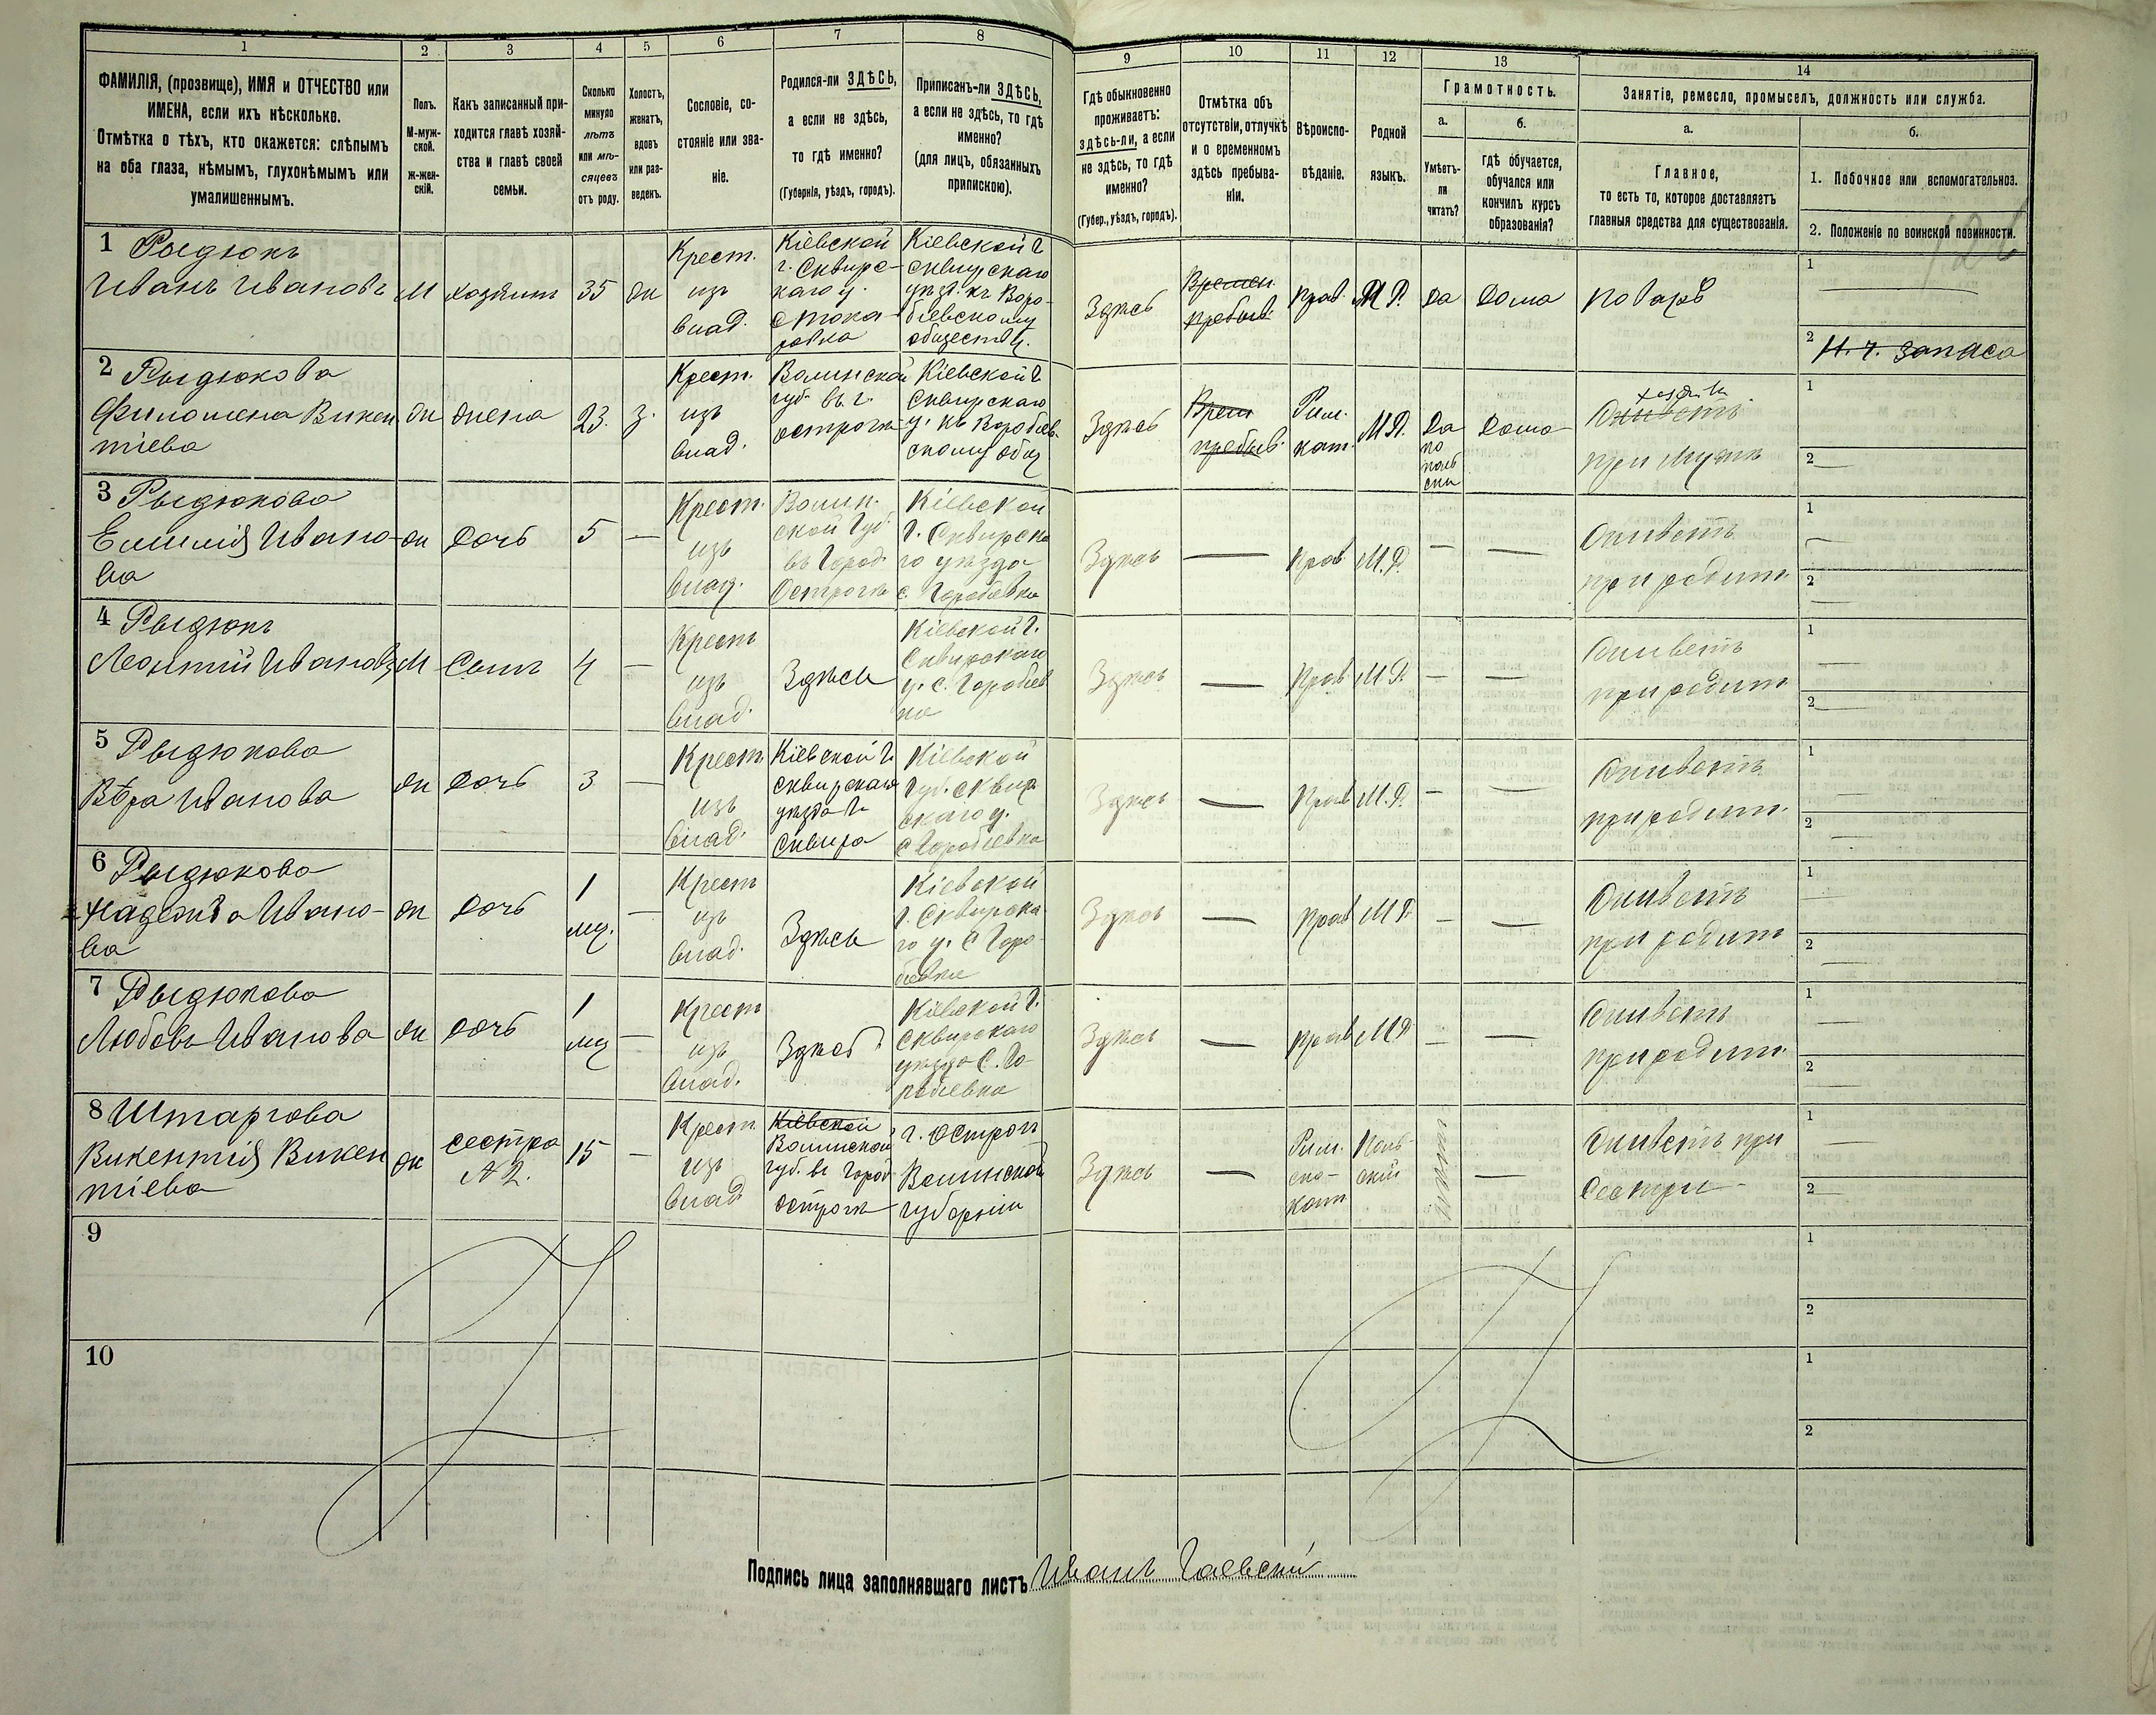 1 2 3 4 5 6 7 8 9 10 11 12 13 14
ФАМИЛІЯ, (прозвище), ИМЯ и ОТЧЕСТВО или
ИМЕНА, если ихъ нѣсколько.
Отмѣтка о тѣхъ, кто окажется: слѣпымъ
на оба глаза, нѣмымъ, глухонѣмымъ или
умалишеннымъ.
Полъ.
М-муж-
ской.
ж-жен-
скій.
Какъ записанный при-
ходится главѣ хозяй-
ства и главѣ своей
семьи.
Сколько
минуло
лѣтъ
или мѣ-
сяцевъ
отъ роду.
Холостъ,
женатъ,
вдовъ
или раз-
веденъ.
Сословіе, со-
стояніе или зва-
ніе.
Родился-ли ЗДѢСЬ,
а если не здѣсь,
то гдѣ именно?
(Губернія, уѣздъ, городъ).
Приписанъ-ли ЗДѢСЬ,
а если не здѣсь, то гдѣ
именно?
(для лицъ, обязанныхъ
припискою).
Гдѣ обыкновенно
проживаетъ:
здѣсь-ли, а если
не здѣсь, то гдѣ
именно?
(Губер., уѣздъ, городъ).
Отмѣтка объ
отсутствіи, отлучкѣ
и о временномъ
здѣсь пребыва-
ніи.
Вѣроиспо-
вѣданіе.
Родной
языкъ.
Грамотность.
а.
Умѣетъ-
ли
читать?
б.
гдѣ обучается,
обучался или
кончилъ курсъ
образованія?
Занятіе, ремесло, промыселъ, должность или служба.
а.
Главное,
то есть то, которое доставляетъ
главныя средства для существованія.
б.
1. Побочное или вспомогательноз.
2. Положеніе по воинской повинности.
1 Рыдюкъ
Иванъ Ивановъ
М
хозяинъ
35
ж
Крест.
изъ
влад.
Кіевской
г. Сквирс-
каго у.
с Тока-
ровка
Кіевской г
сквирскаго
уѣзд. къ Воро-
біевскому
обществу.
Здѣсь
Времен.
пребыв.
прав.
М Р.
да
дома
поваръ
1
2 Н. ч. запаса
2 Рыдюкова
Филомена Викен
тіева
ж
жена
23.
з.
Крест.
изъ
влад.
Волинской
губ. въ г.
острогѣ
Кіевской г
Сквирскаго
у. къ Воробіев-
скому общ
Здѣсь
Врем
пребыв.
Рим.
кат.
М Р.
Да
по
поль
ски
дома
Живетъ
при мужѣ
1
2
3 Рыдюкова
Емилія Ивано-
ва
ж
дочь
5
Крест.
изъ
влад.
Волин-
ской Губ.
въ Город.
Острогѣ
Кіевской
Г. Сквирска
го уѣзда
с. Горобіевка
Здѣсь
прав.
М. Р.
Живетъ
при родит.
1
2
4 Рыдюкъ
Леонтій Ивановъ
М
Сынъ
4
Крест
изъ
влад.
Здѣсь
Кіевской Г.
Сквирскаго
у. с. Горобіев
ка
Здѣсь
прав
М Р.
Живетъ
при родит
1
2
5 Рыдюкова
Вѣра Иванова
ж
дочь
3
Крест.
изъ
влад.
Кіевской Г.
сквирскаго
уѣзда г.
Сквира
Кіевской
Губ. сквир
скаго у.
с Горобіевка
Здѣсь
прав
М. Р.
Живетъ
при родит.
1
2
6 Рыдюкова
Надежда Ивано-
ва
ж
дочь
1
мц.
Крест
изъ
влад.
Здѣсь
Кіевской
Г. Сквирска
го у. с Горо-
біевка
Здѣсь
прав
М Р.
Живетъ
при родит
1
2
7 Рыдюкова
Любовь Иванова
ж
дочь
1
мц
Крест
изъ
влад.
Здѣсь
Кіевской Г.
Сквирскаго
уѣзда С. Го-
робіевка
Здѣсь
прав
М Р
Живетъ
при родит.
1
2
8 Штаргова
Викентія Викен
тіева
ж
сестра
№ 2.
15
Крест
изъ
влад
Кіевской
Волинской
губ. въ город
острогѣ
г. острогъ
Волинской
губерніи
Здѣсь
Рим.
ско-
кат
Поль-
скій
Живетъ при
Сестри
1
2
9
1
2
10
1
2
Подпись лица заполнявшаго листъ Иванъ Гаевскій